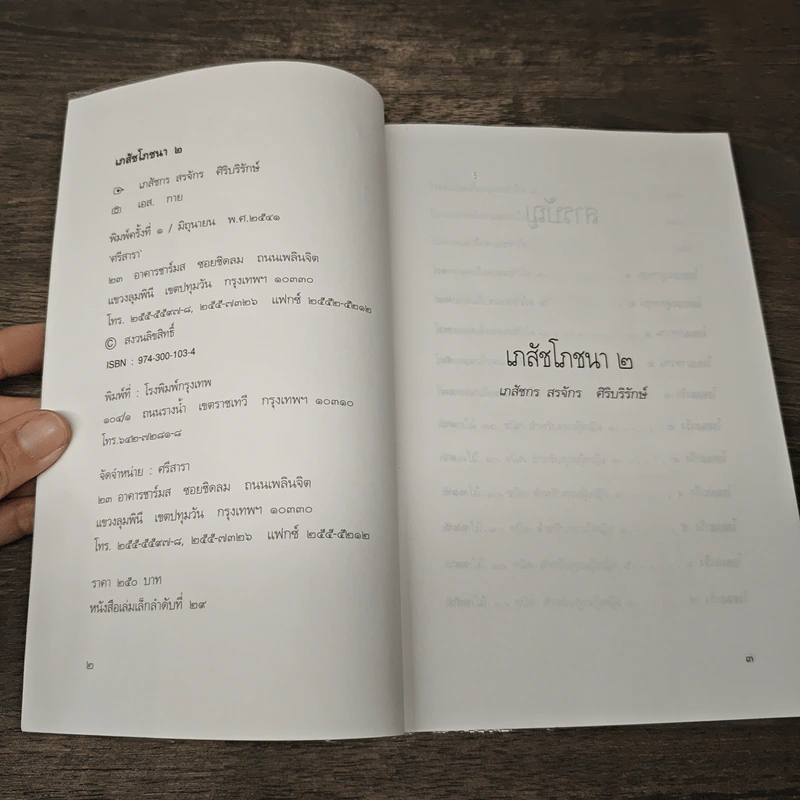 เภสัชโภชนา ๒
เภสัชกร สรจักร ศิริบริรักษ์
เอส. กาย
พิมพ์ครั้งที่ ๑ / มิถุนายน พ.ศ.๒๕๔๑
'ศรีสารา'
๒๓ อาคารชาร์มส ซอยชิดลม ถนนเพลินจิต
แขวงลุมพินี เขตปทุมวัน กรุงเทพฯ ๑๐๓๓๐
โทร. ๒๕๕-๕๕๙๗-๘, ๒๕๕-๗๓๒๖ แฟกซ์ ๒๕๕๒-๕๒๑๒
© สงวนลิขสิทธิ์
ISBN : 974-300-103-4
พิมพ์ที่ : โรงพิมพ์กรุงเทพ
๑๐๔/๑ ถนนรางน้ำ เขตราชเทวี กรุงเทพฯ ๑๐๓๑๐
โทร.๖๔๒-๗๒๘๑-๘
จัดจำหน่าย : ศรีสารา
๒๓ อาคารชาร์มส ซอยชิดลม ถนนเพลินจิต
แขวงลุมพินี เขตปทุมวัน กรุงเทพฯ ๑๐๓๓๐
โทร. ๒๕๕-๕๕๙๗-๘, ๒๕๕-๗๓๒๖ แฟกซ์ ๒๕๕-๕๒๑๒
ราคา ๒๕๐ บาท
หนังสือเล่มเล็กลำดับที่ ๒๙
๒
เภสัชโภชนา ๒
เภสัชกร สรจักร ศิริบริรักษ์
๓